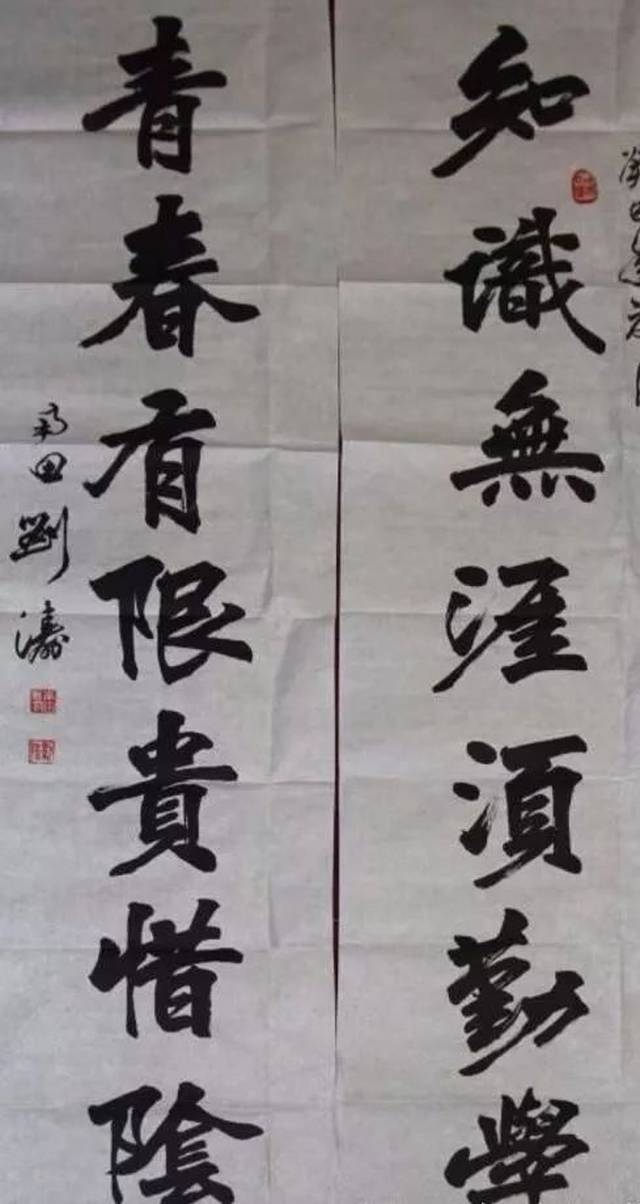 知識無涯須勤學
青春有限貴惜陰
雨田劉濤